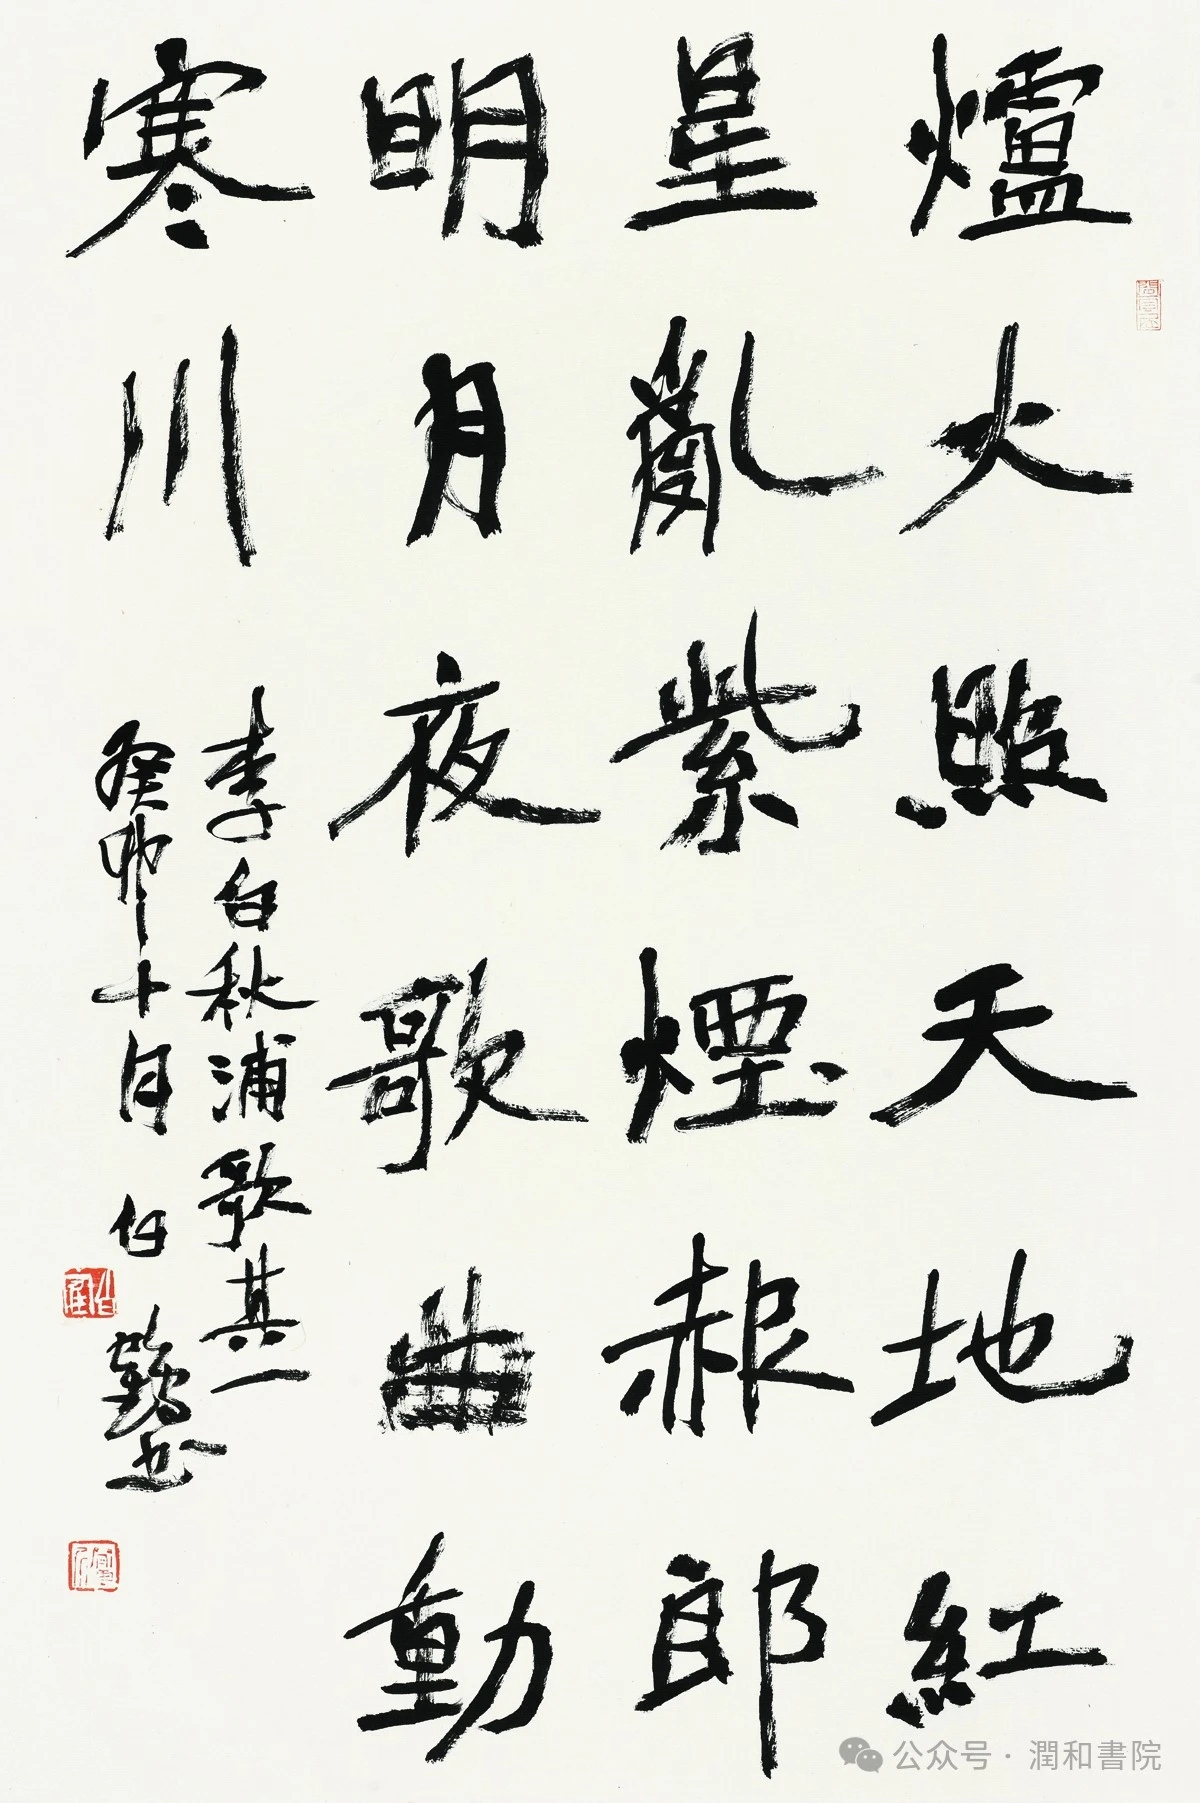 爐火照天地紅
星亂紫煙赧郎
明月夜歌曲動
寒川
李白秋浦歌其一
癸卯十月任鶴書
公众号 · 潤和書院